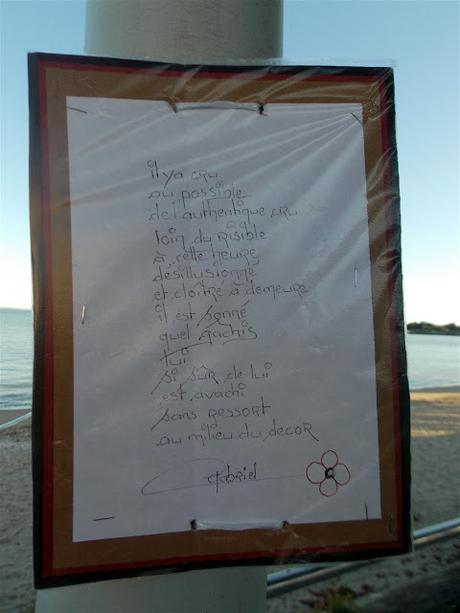 il y a cru
au possible
de l'authentique cru
loin du risible
à cette heure
désillusionné
et cloîtré à demeure
il est sonné
quel gachis
lui
si sûr de lui
est avachi
sans ressort
au milieu du decor
Gabriel